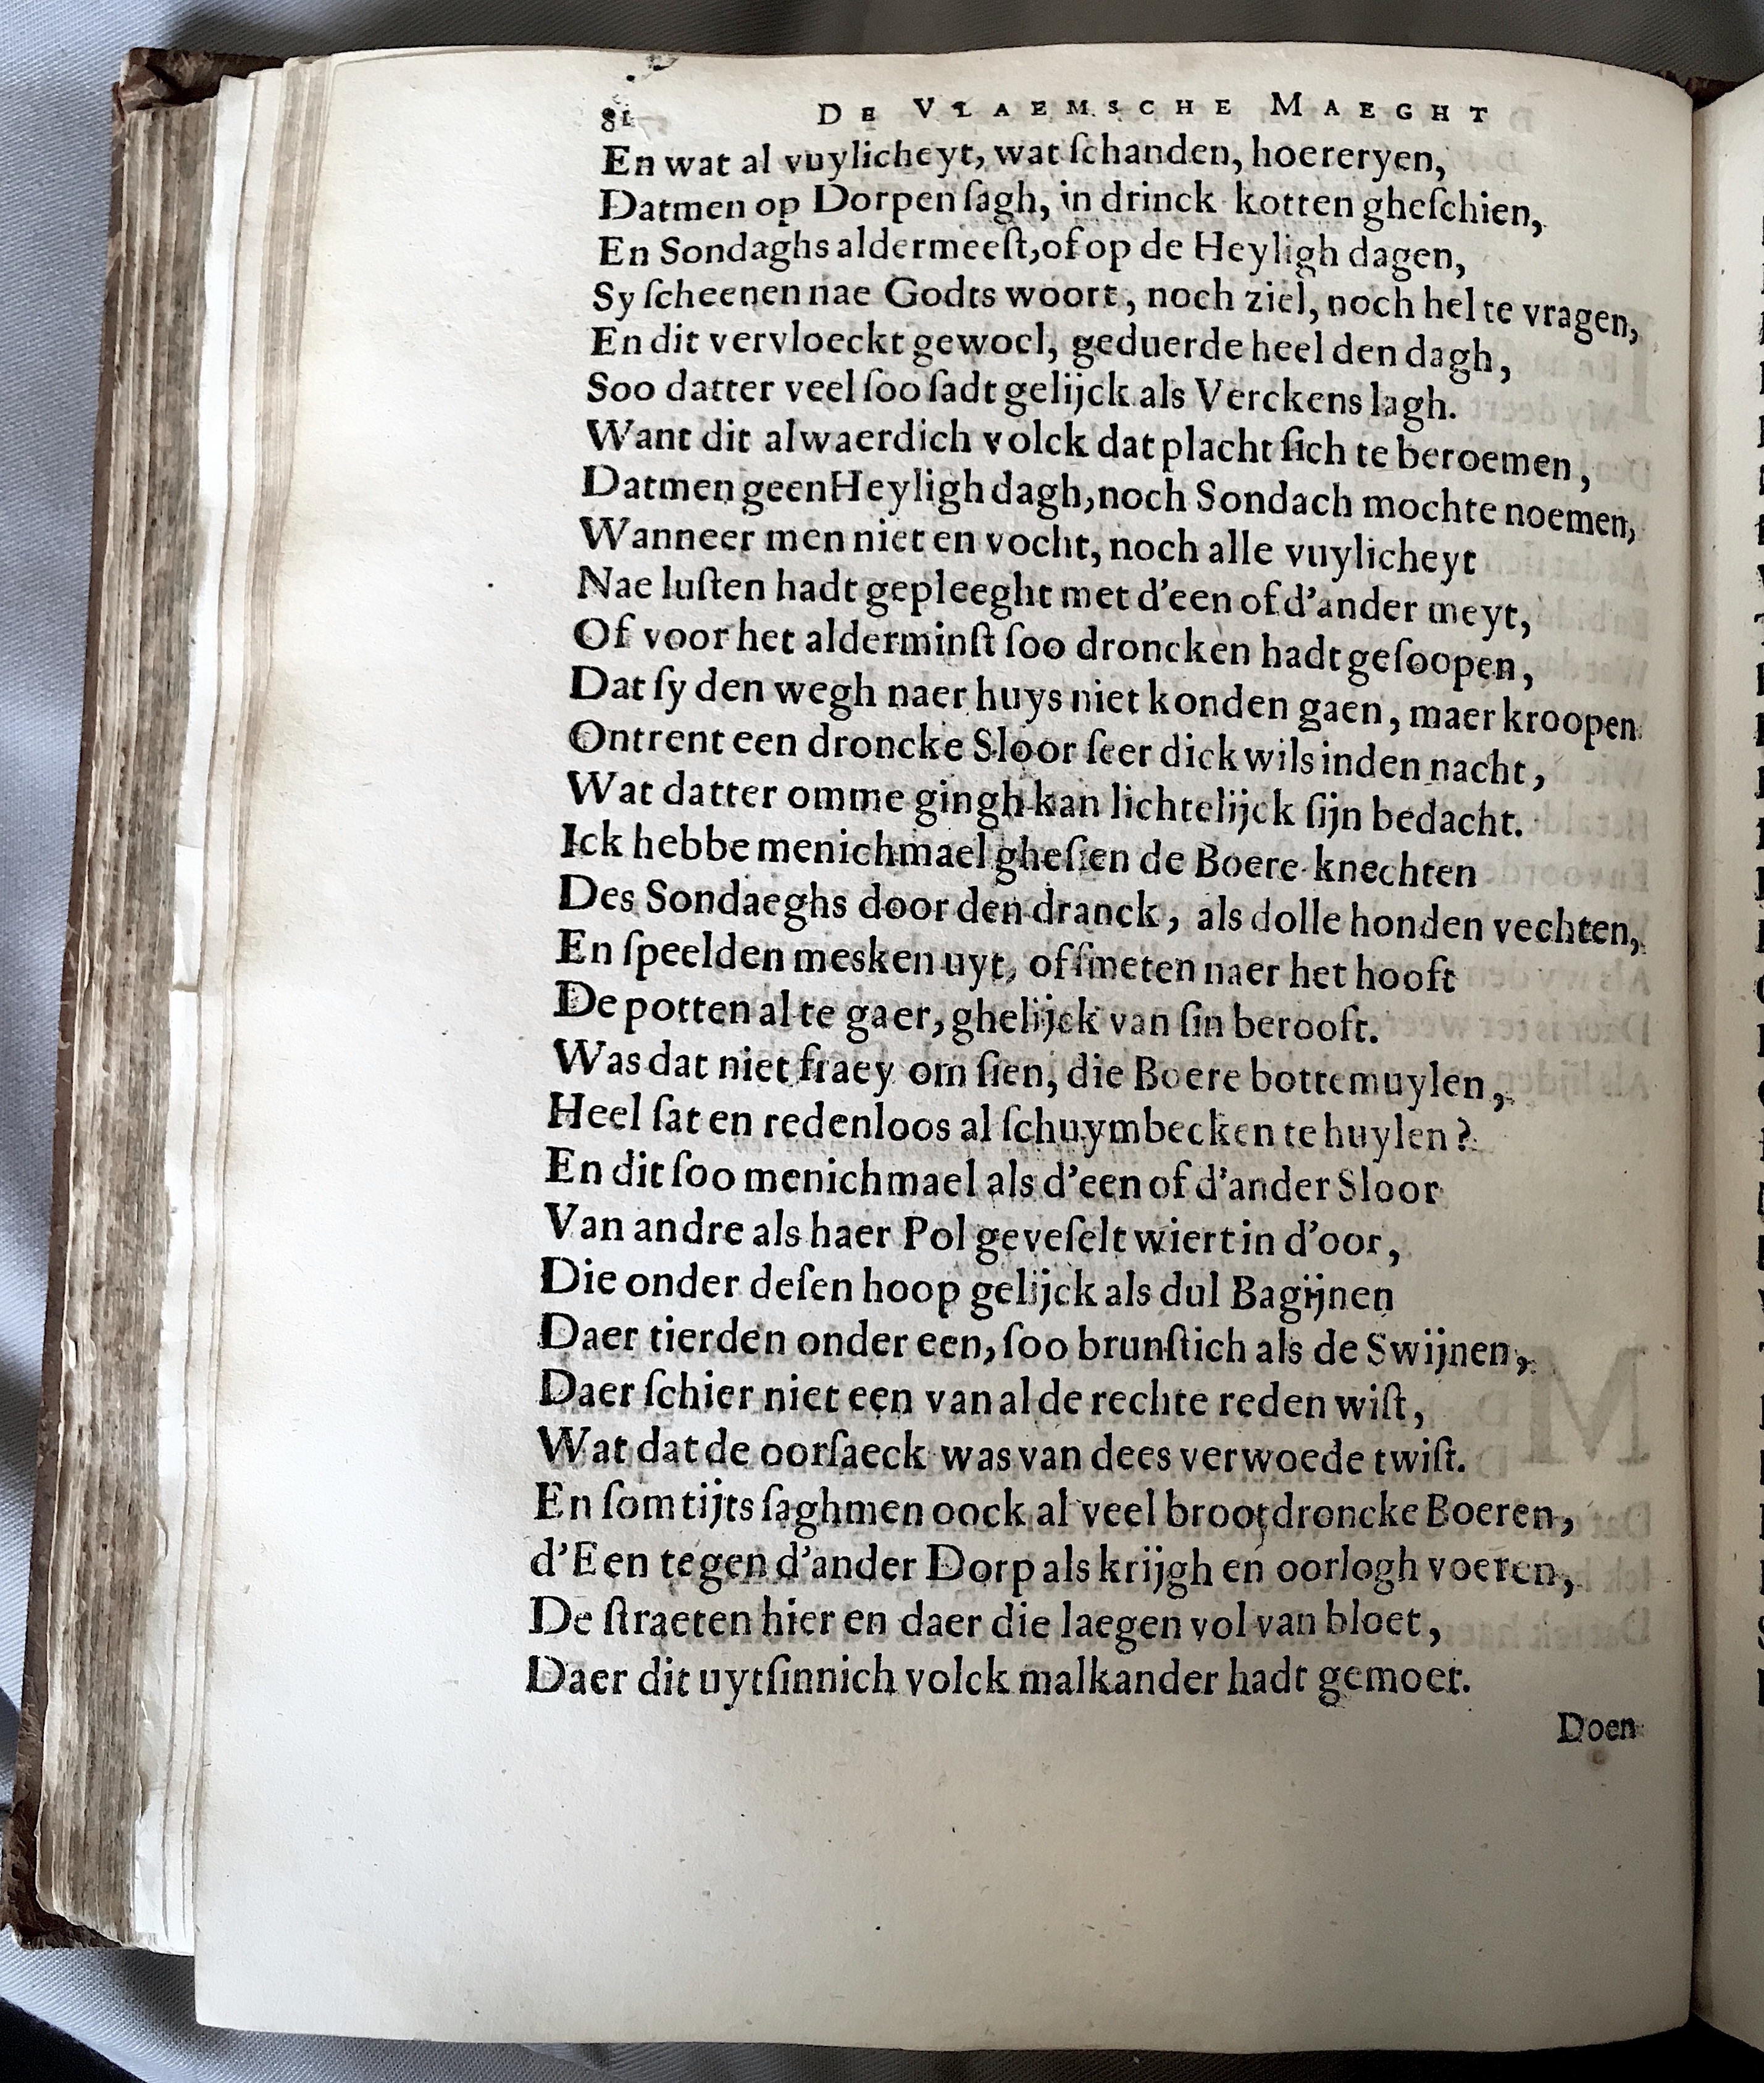 81 DE VLAEMSCHE MAEGHT
En wat al vuylicheyt, wat ſchanden, hoereryen,
Datmen op Dorpen ſagh, in drinck kotten gheſchien,
En Sondaghs aldermeeſt, of op de Heyligh dagen,
Sy ſcheenen nae Godts woort, noch ziel, noch hel te vragen,
En dit vervloeckt gewoel, geduerde heel den dagh,
Soo datter veel ſoo ſadt gelijck als Verckens lagh.
Want dit alwaerdich volck dat placht ſich te beroemen,
Datmen geen Heyligh dagh, noch Sondach mochte noemen,
Wanneer men niet en vocht, noch alle vuylicheyt
Nae luſten hadt gepleeght met d'een of d'ander meyt,
Of voor het alderminſt ſoo droncken hadt geſoopen,
Dat ſy den wegh naer huys niet konden gaen, maer kroopen
Ontrent een droncke Sloor ſeer dickwils inden nacht,
Wat datter omme gingh kan lichtelijck ſijn bedacht.
Ick hebbe menichmael gheſien de Boere knechten
Des Sondaeghs door den dranck, als dolle honden vechten,
En ſpeelden mesken uyt, of ſmeten naer het hooft
De potten al te gaer, ghelijck van ſin berooft.
Was dat niet fraey om ſien, die Boere bottemuylen,
Heel ſat en redenloos al ſchuymbecken te huylen?
En dit ſoo menichmael als d'een of d'ander Sloor
Van andre als haer Pol geveſelt wiert in d'oor,
Die onder deſen hoop gelijck als dul Bagijnen
Daer tierden onder een, ſoo brunſtich als de Swijnen,
Daer ſchier niet een van al de rechte reden wiſt,
Wat dat de oorſaeck was van dees verwoede twiſt.
En ſomtijts ſaghmen oock al veel brootdroncke Boeren,
d'Een tegen d'ander Dorp als krijgh en oorlogh voeren,
De ſtraeten hier en daer die laegen vol van bloet,
Daer dit uytſinnich volck malkander hadt gemoet.
Doen